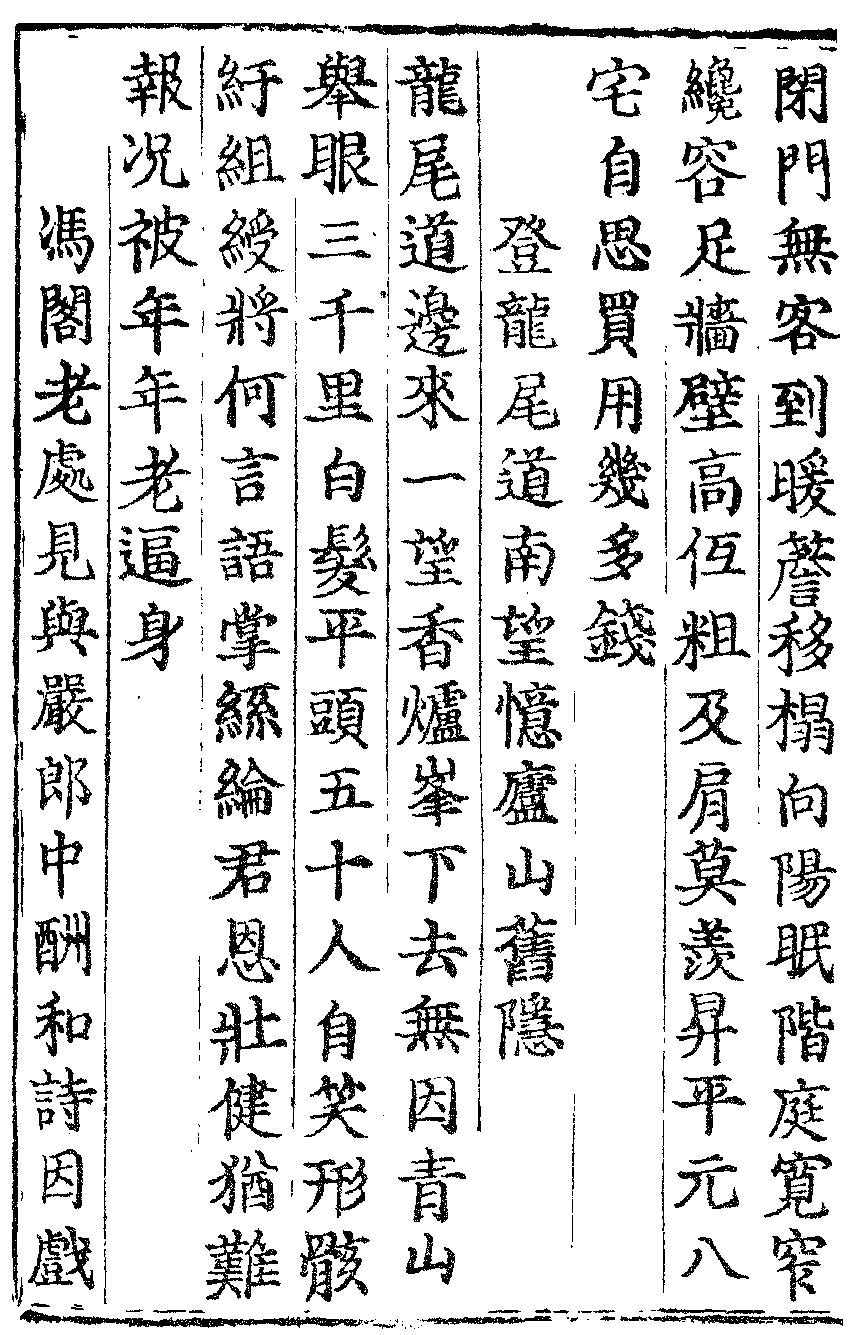 閉門無客到暖簷移榻向陽眠階庭寬窄
纔容足牆壁高伭粗及肩莫羨昇平元八
宅自思買用幾多錢
登龍尾道南望憶廬山舊隱
龍尾道邊來一望香爐峯下去無因青山
舉眼三千里白髮平頭五十人自笑形骸
紆組綬將何言語掌絲綸君恩壯健猶難
報况被年年老逼身
馮閣老處見與嚴郎中酬和詩因戲